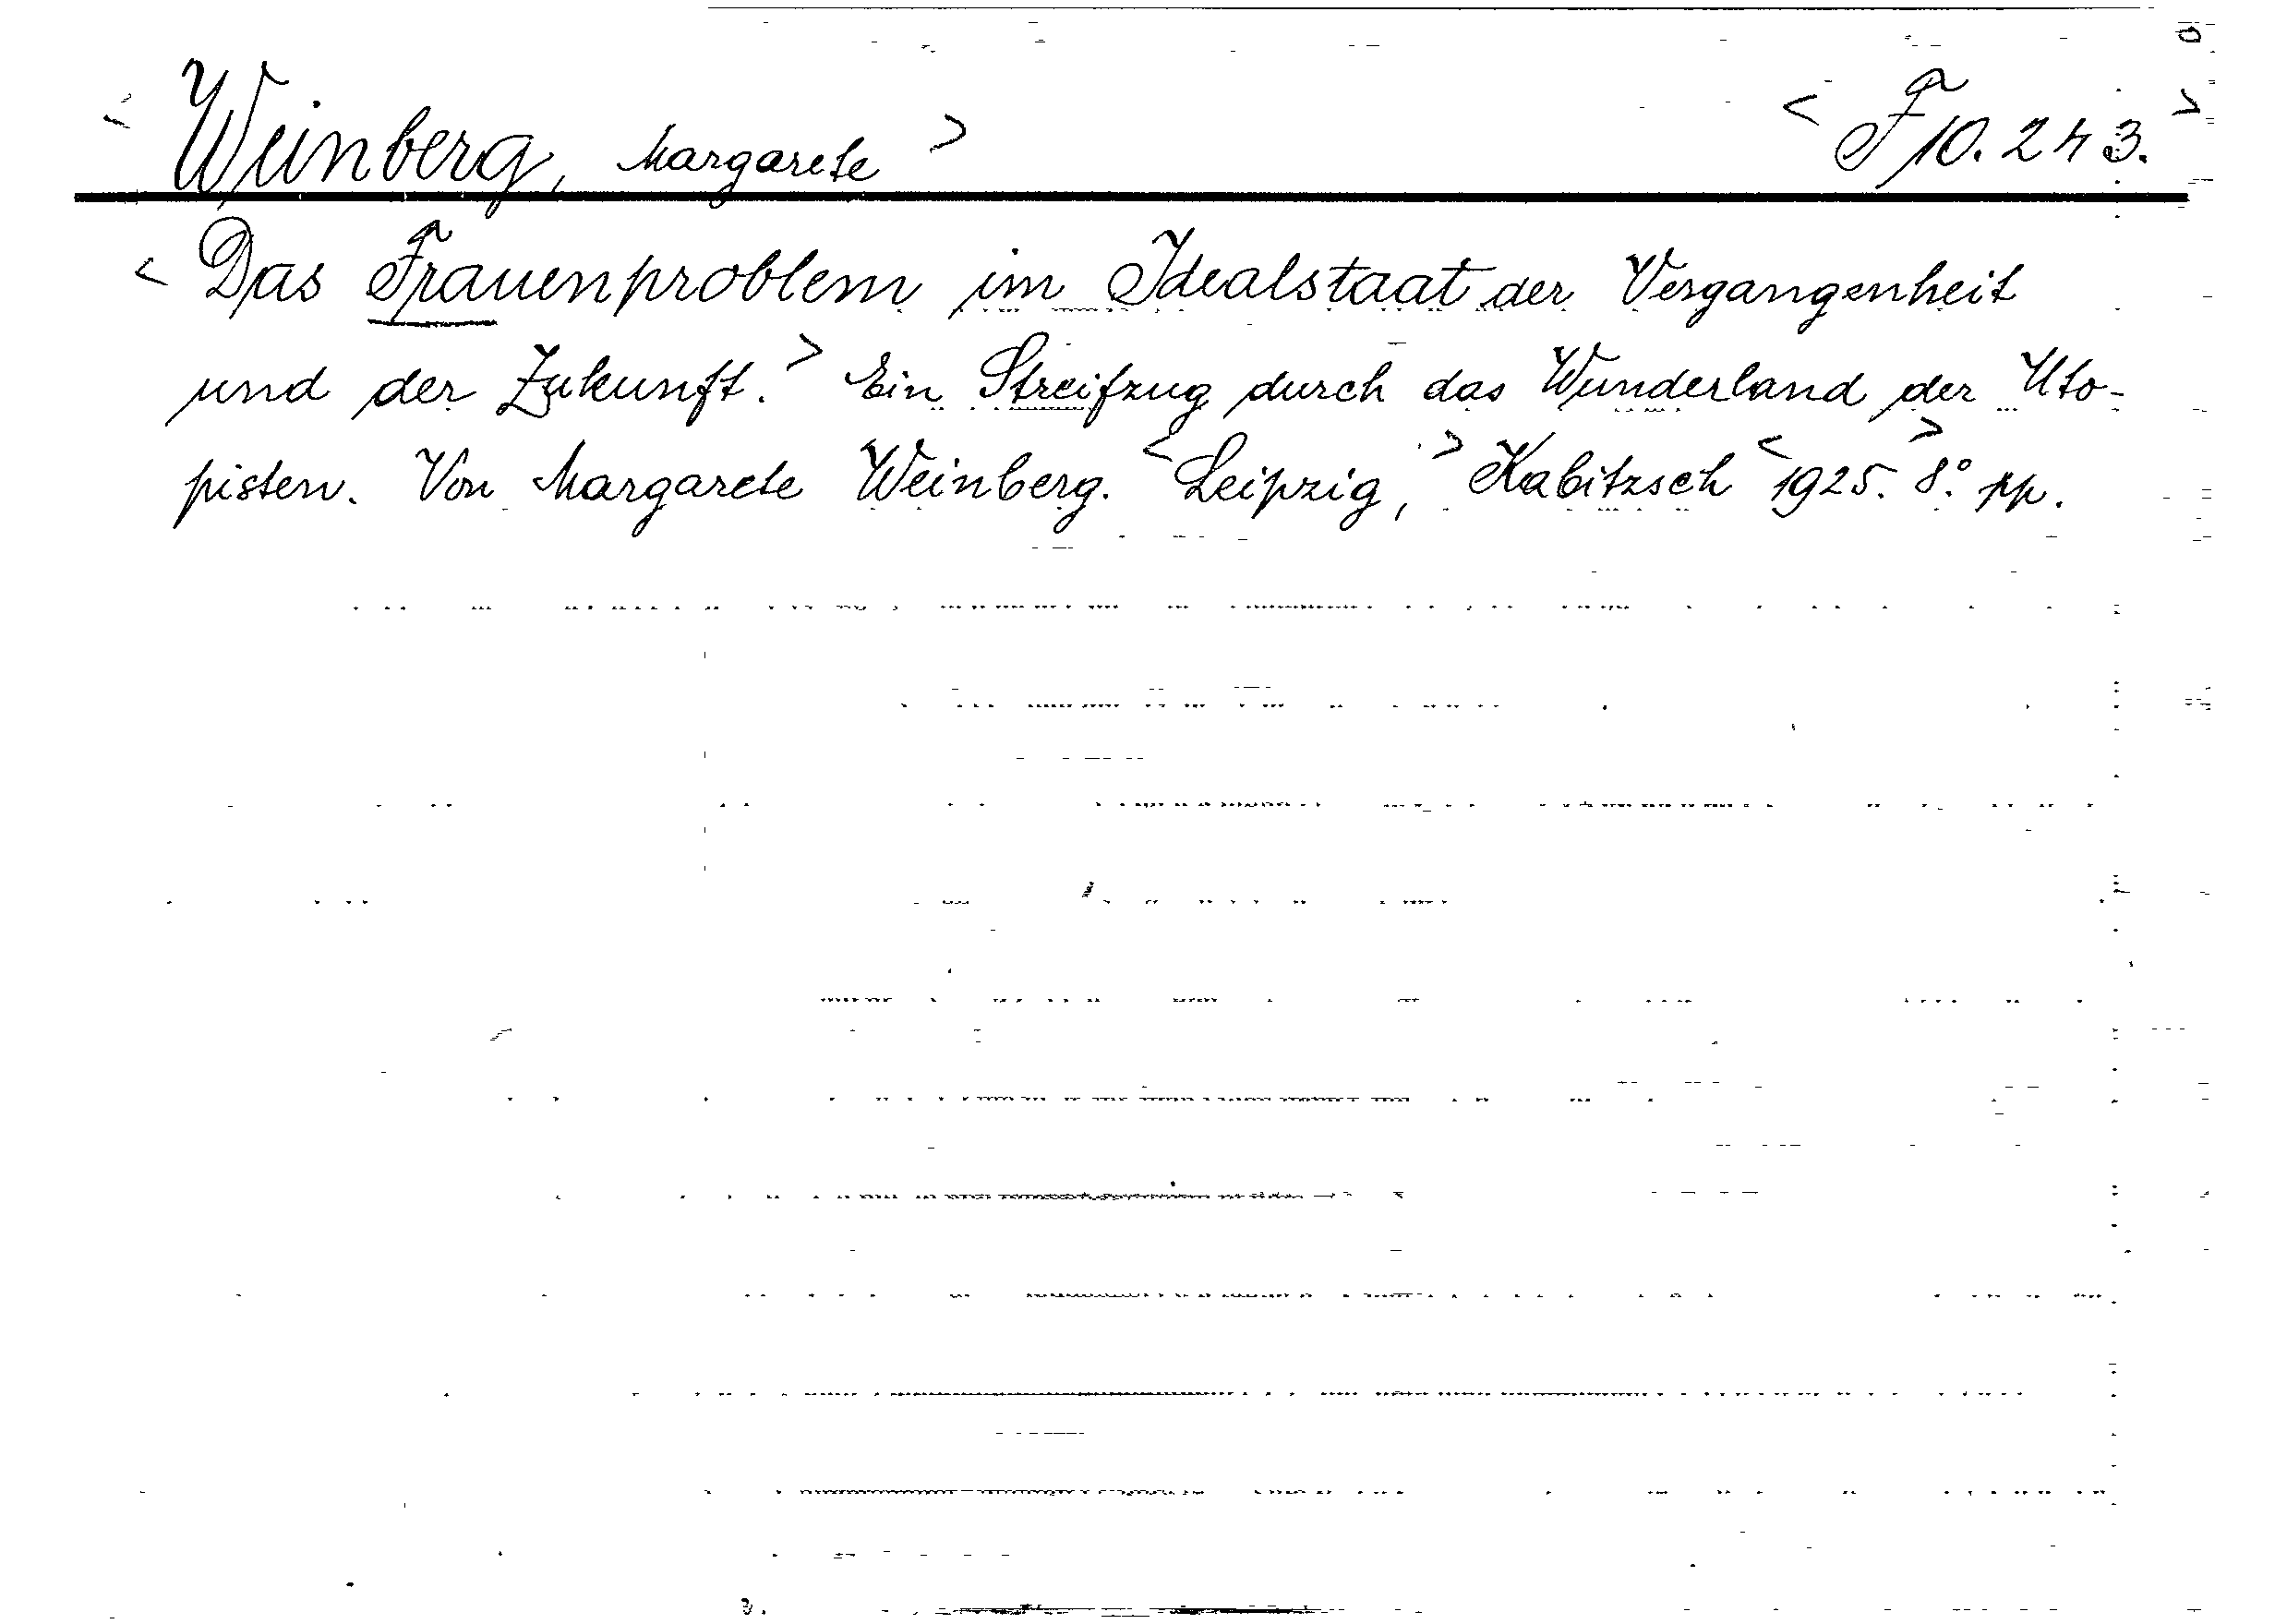 < Weinberg, Margarete > < F 10.243. >
< Das Frauenproblem im Idealstaat der Vergangenheit
und der Zukunft. > Ein Streifzug durch das Wunderland der Uto-
pisten. Von Margarete Weinberg. < Leipzig, > Kabitzsch < 1925. > 8.° pp.